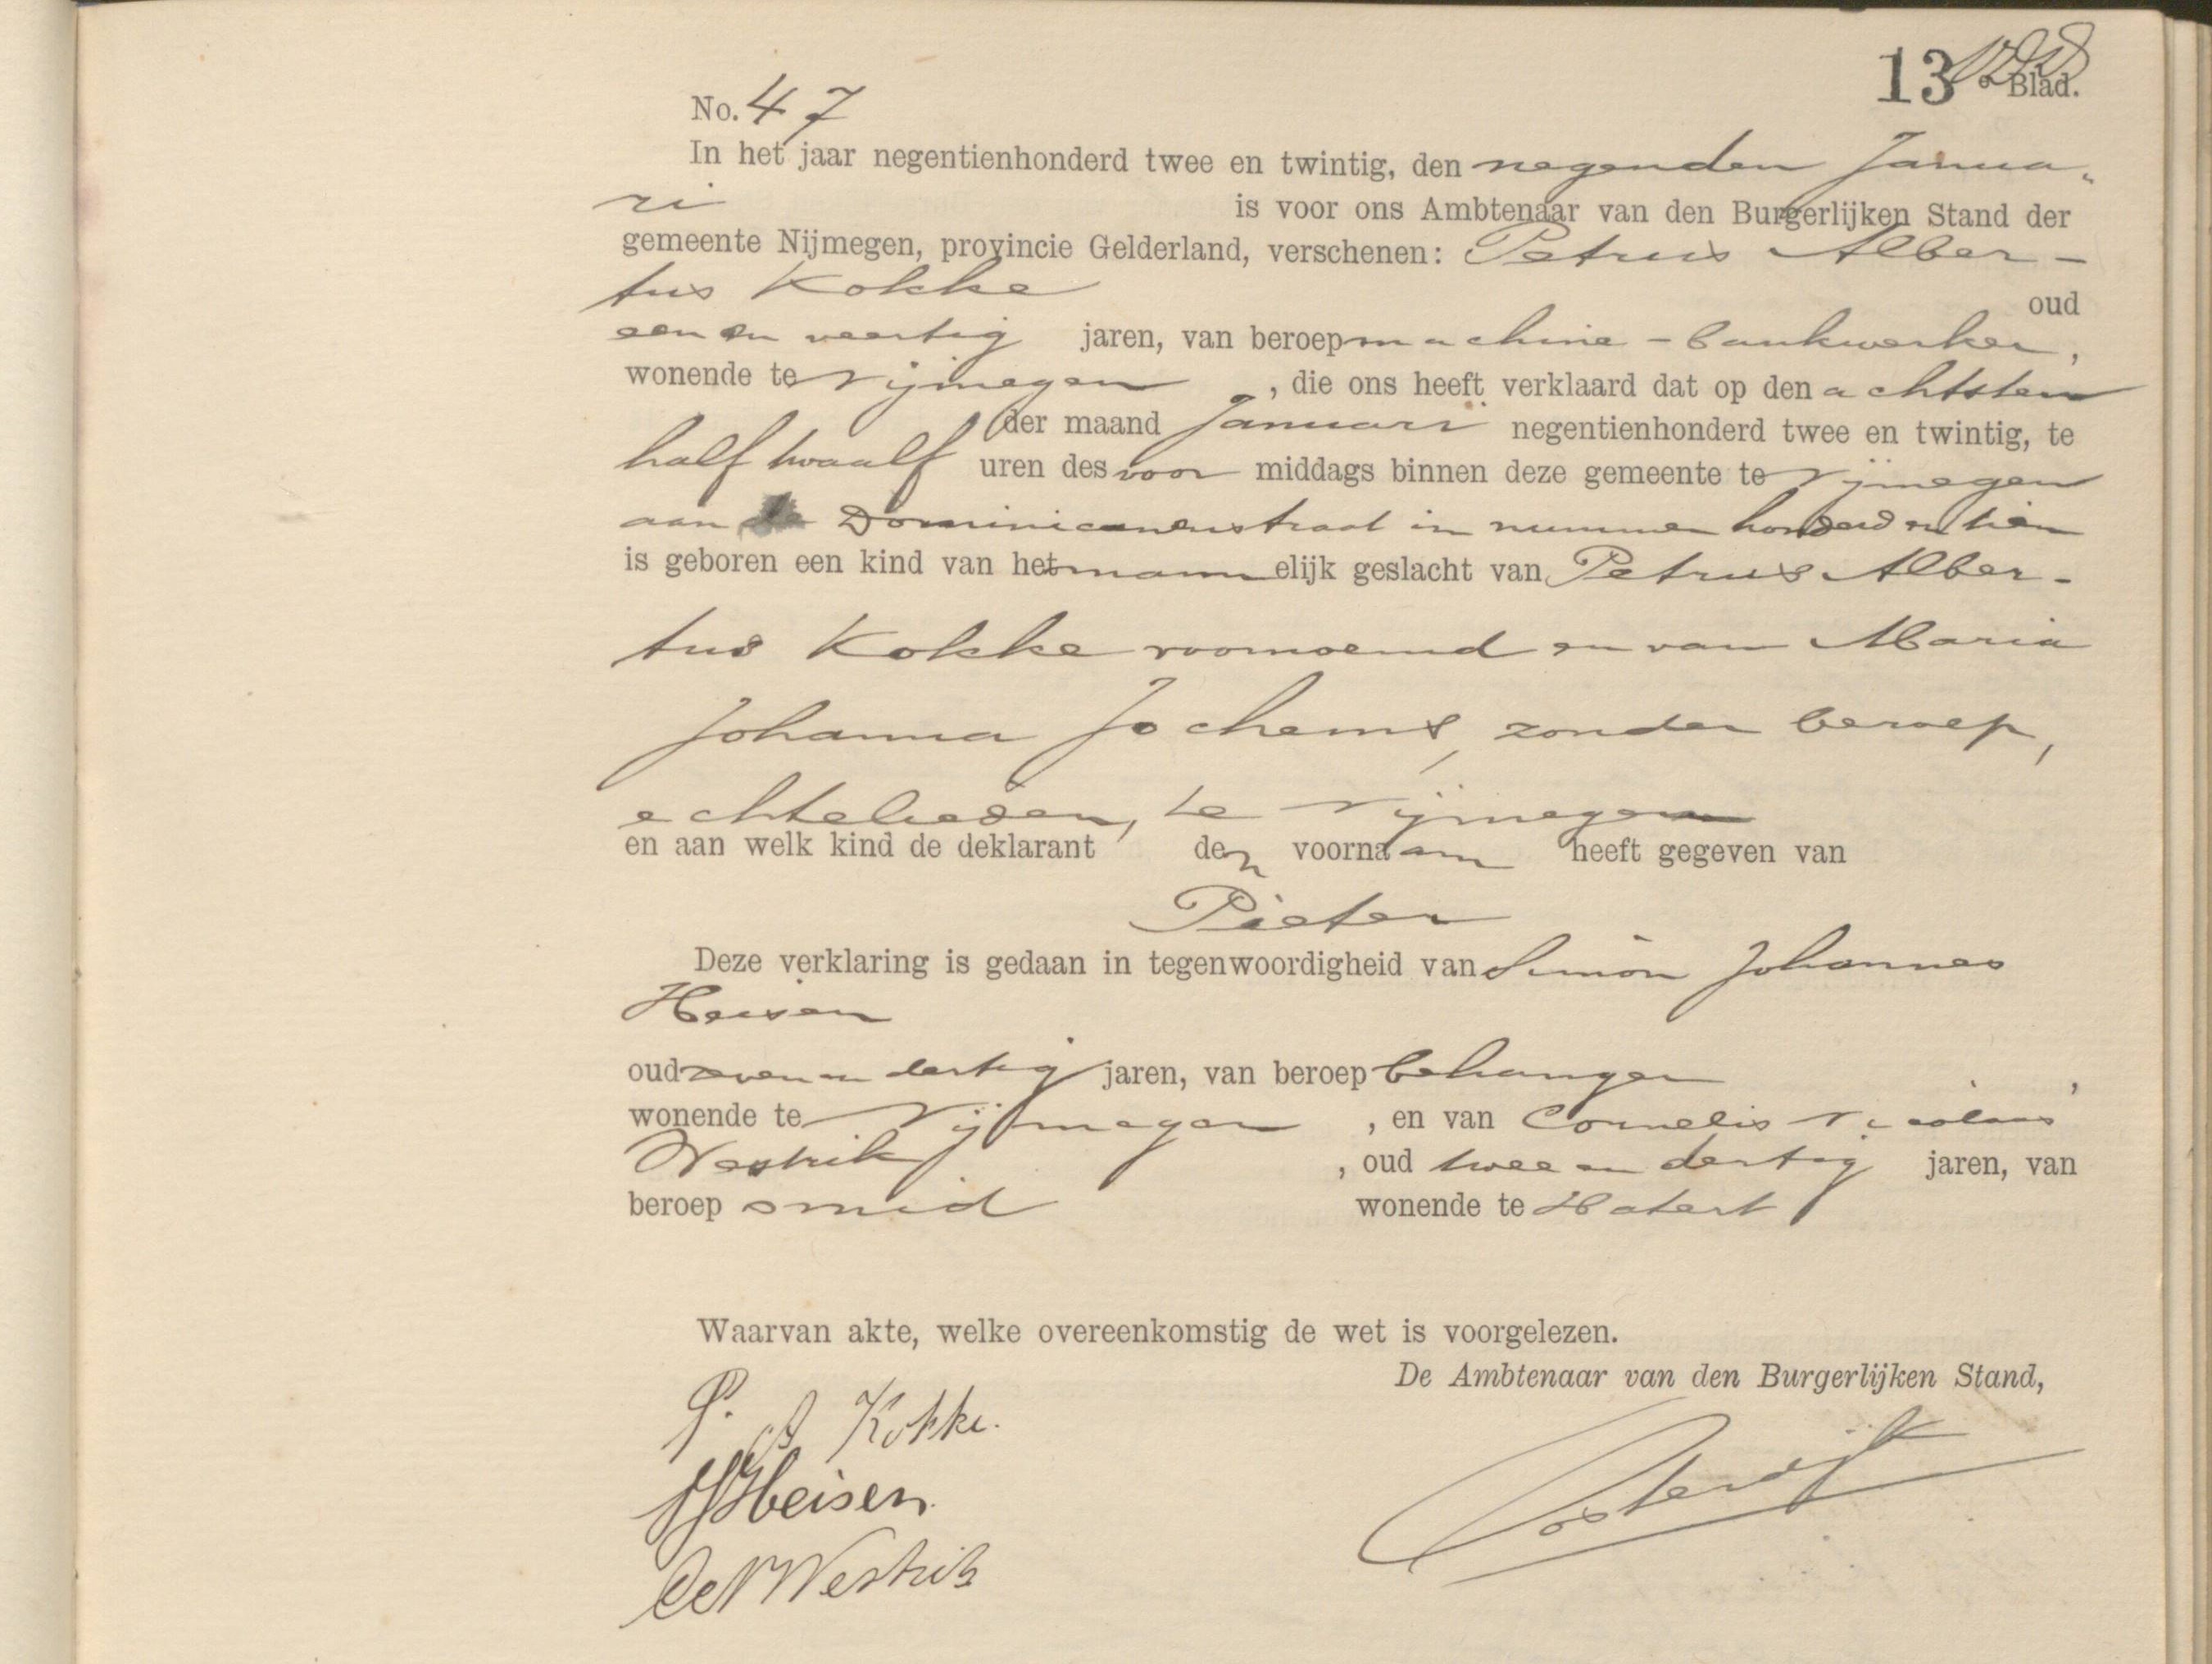 13e Blad.
No. 47
In het jaar negentienhonderd twee en twintig, den negenden Janua-
ri is voor ons Ambtenaar van den Burgerlijken Stand der
gemeente Nijmegen, provincie Gelderland, verschenen: Petrus Alber-
tus Kokke oud
een en veertig jaren, van beroep machine-bankwerker,
wonende te Nijmegen, die ons heeft verklaard dat op den achtsten
der maand Januari negentienhonderd twee en twintig, te
half twaalf uren des voor middags binnen deze gemeente te Nijmegen
aan de Dominicanenstraat in nummer honderd en tien
is geboren een kind van het mannelijk geslacht van Petrus Alber-
tus Kokke voornoemd en van Maria
Johanna Jochems, zonder beroep,
echtelieden, te Nijmegen
en aan welk kind de deklarant den voornaam heeft gegeven van
Pieter
Deze verklaring is gedaan in tegenwoordigheid van Simon Johannes
Heisen
oud zeven en dertig jaren, van beroep behanger,
wonende te Nijmegen, en van Cornelis Nicolaas
Westrik, oud twee en dertig jaren, van
beroep smid wonende te Hatert
Waarvan akte, welke overeenkomstig de wet is voorgelezen.
De Ambtenaar van den Burgerlijken Stand,
P. A Kokke.
SJHeisen.
CNWestrik